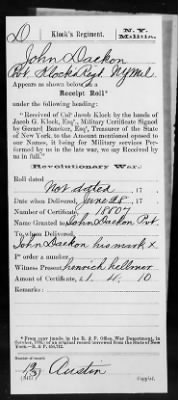 D Klock's Regiment. N. Y. Militia.
John Dackon
Pvt. Klocks Regt. NY Mil.
Appears as shown below on a
Receipt Roll*
under the following heading:
"Received of Colº Jacob Klock by the hands of
Jacob G. Klock, Esqʳ, Military Certificate Signed
by Gerard Bancker, Esqʳ, Treasurer of the State of
New York, to the Amount mentioned opposed to
our Names, it being for Military services Per-
formed by us in the late war, we say Received by
us in full."
Revolutionary War.
Roll dated
Not dated, 17 .
Date when Delivered, June 28, 17 .
Number of Certificate, 18807
Name Granted to John Dackon Pvt.
To whom Delivered,
John Dackon his mark X.
Pr order a number
Witness Present henrich hellmer
Amount of Certificate £1. 4. 10
Remarks:
Number of record:
13
Austin
Copyist.